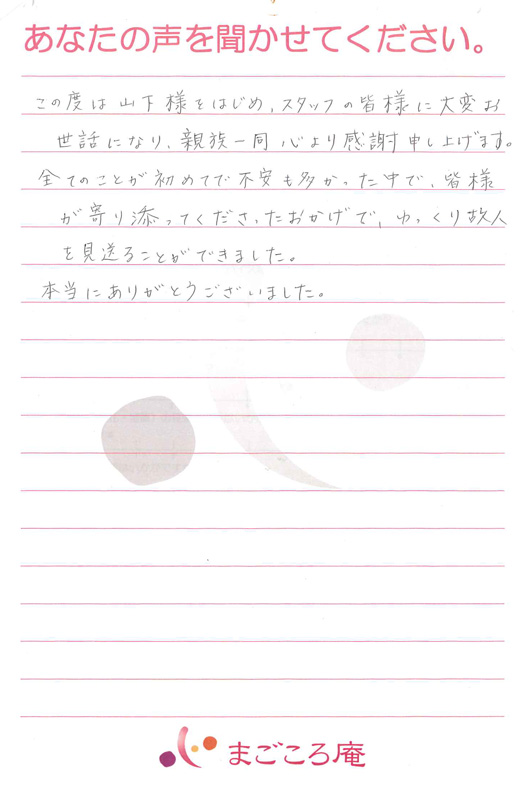 あなたの声を聞かせてください。
この度は山下様をはじめ、スタッフの皆様に大変お
世話になり、親族一同心より感謝申し上げます。
全てのことが初めてで不安も多かった中で、皆様
が寄り添ってくださったおかげで、ゆっくり故人
を見送ることができました。
本当にありがとうございました。
まごころ庵